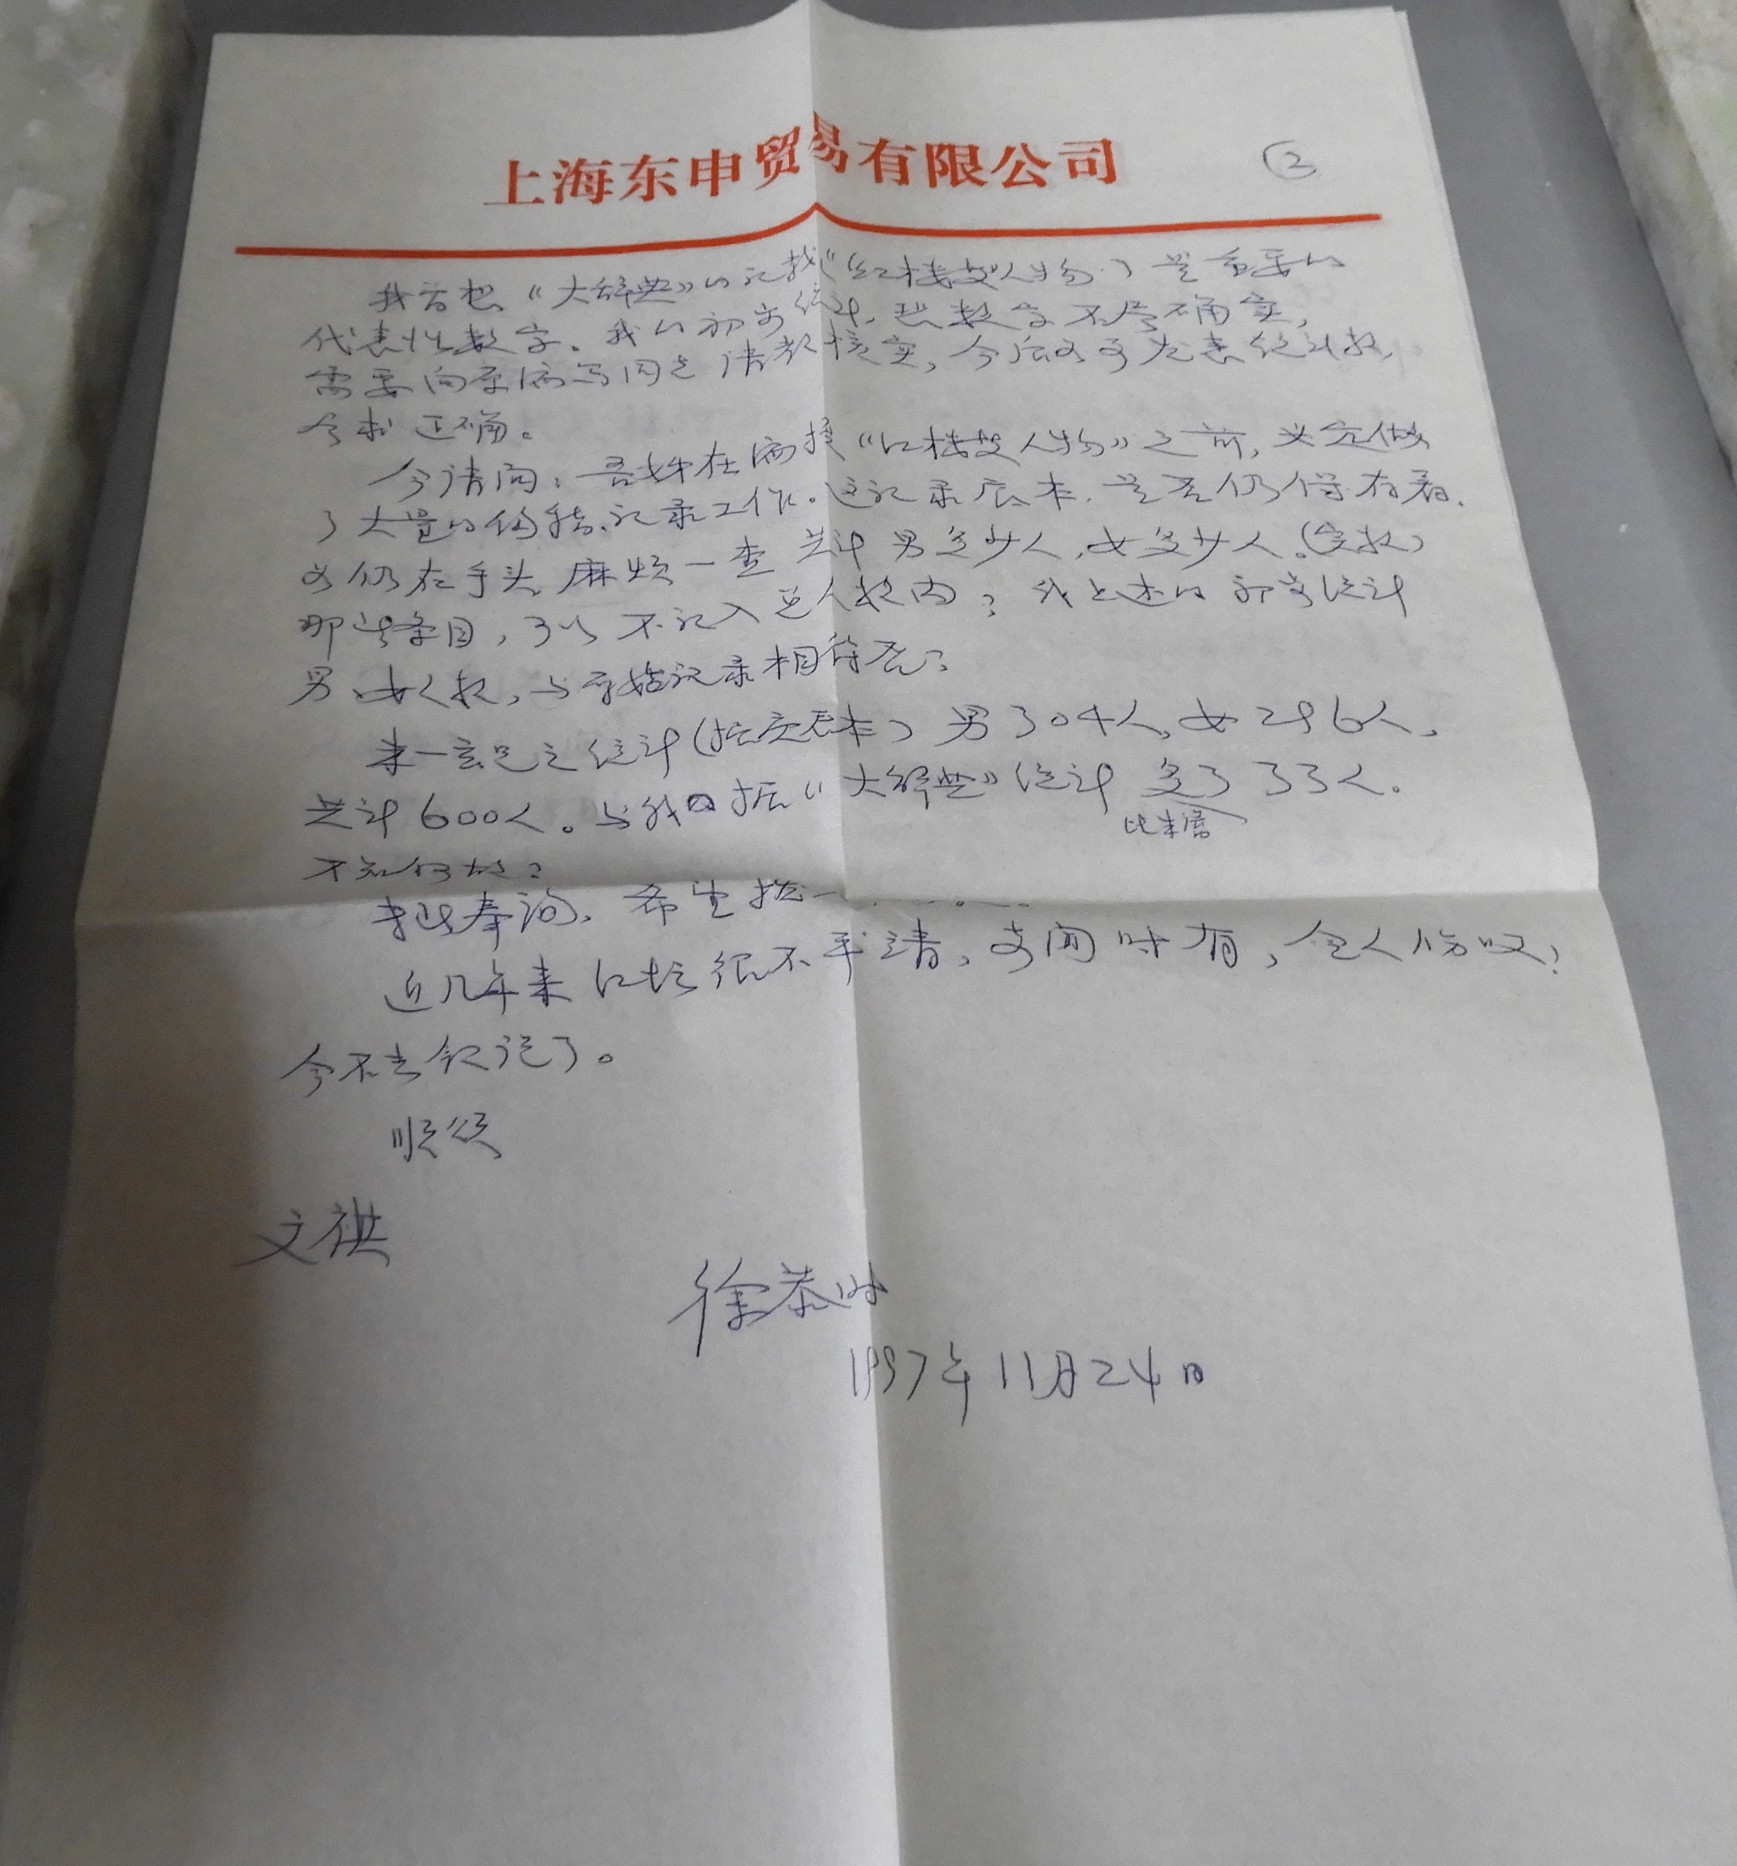 上海东申贸易有限公司
②
我方想《大辞典》的记载《红楼梦人物》是重要的
代表性数字。我的初步统计，恐数字不尽确实，
需要向原编写同志请教核实，今后如可发表统计数，
今求正确。
今请问：吾妹在编撰《红楼梦人物》之前，必定做
了大量的编辑、记录工作。这记录底本，是否仍保存着，
如仍在手头，麻烦一查 共计男多少人，女多少人。（实数）
那些条目，可以不记入总人数内？我上述的初步统计
男、女人数，与原始记录相符否？
朱一玄兄之统计（据庚辰本）男304人，女296人，
共计600人。与我据《大辞典》统计 多了33人。
比朱著
不知何故？
专此奉询，希望拨一
近几年来红坛很不平静，奇闻时有，令人惋叹！
今不去叙说了。
顺颂
文祺
徐恭时
1997年11月24日